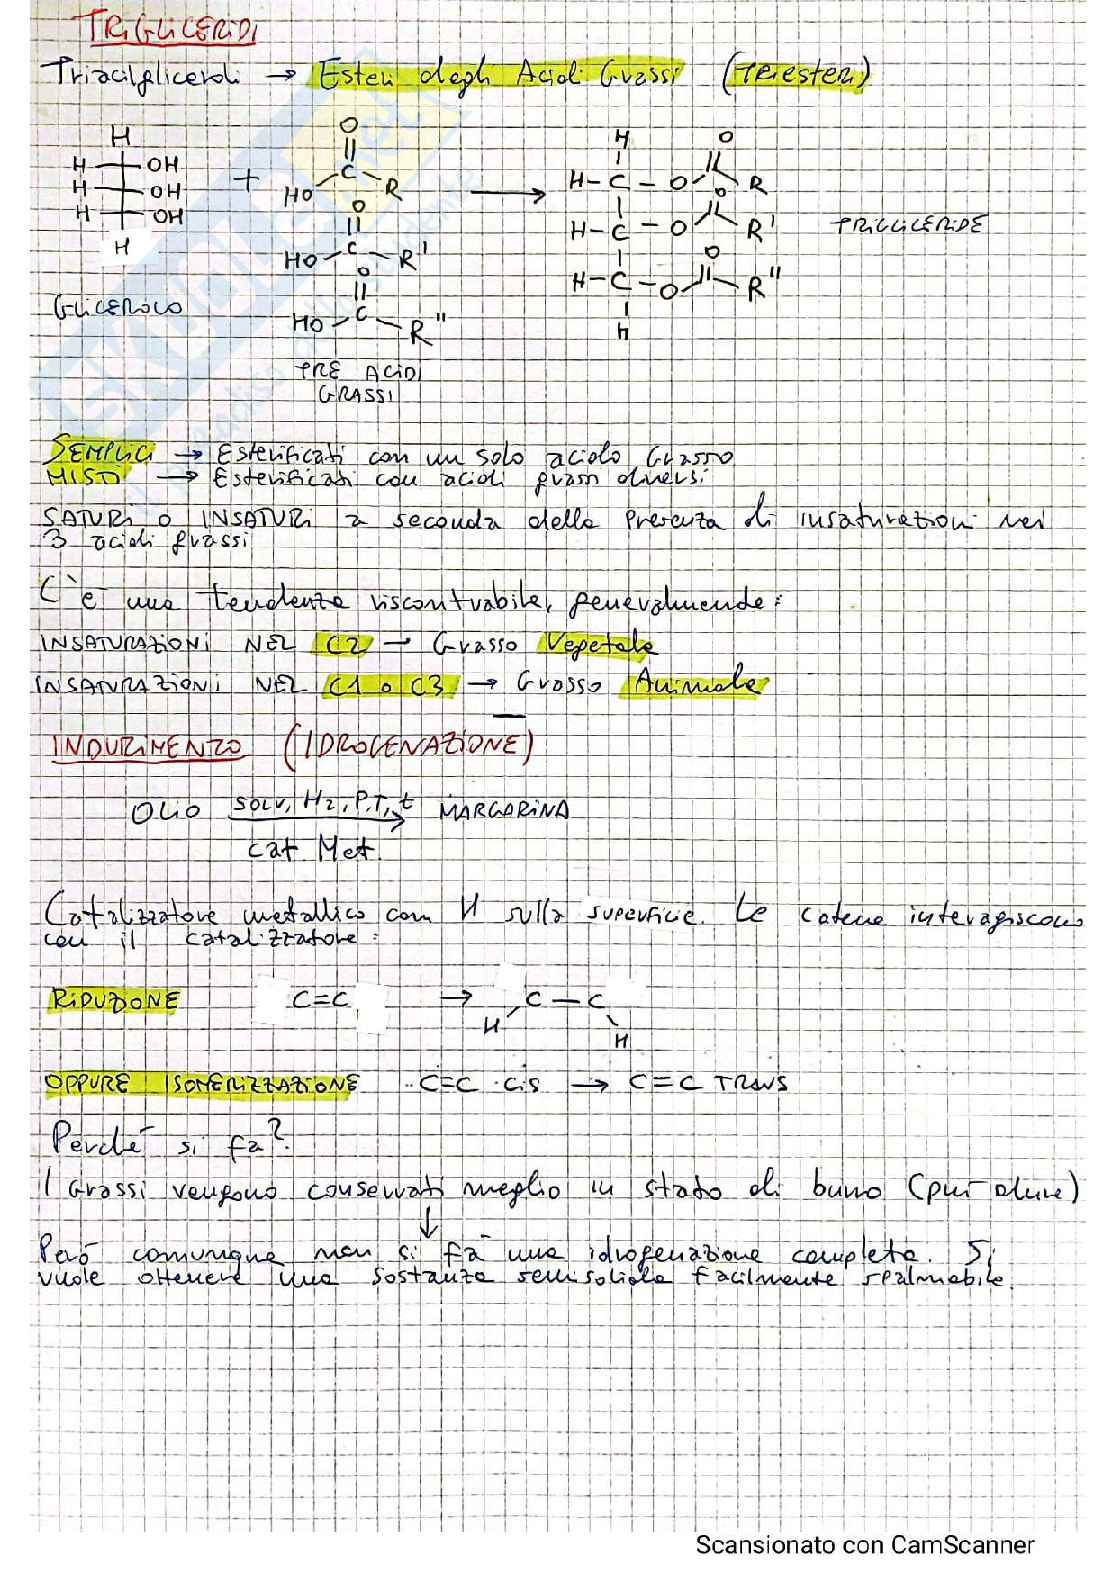 TRIGLICERIDI
Triacilgliceroli → Esteri degli Acidi Grassi (TRiesteri)
H
H OH
H OH
H OH
H
GLICEROLO
+
O
HO C R
O
HO C R'
O
HO C R"
TRE ACIDI
GRASSI
→
H O
H - C - O R
O
H - C - O R'
O
H - C - O R"
H
TRIGLICERIDE
SEMPLICI → Esterificati con un solo acido Grasso
MISTI → Esterificati con acidi grassi diversi
SATURI o INSATURI a seconda della presenza di insaturazioni nei
3 acidi grassi
C'è una tendenza riscontrabile, generalmende:
INSATURAZIONI NEL C2 → Grasso Vegetale
INSATURAZIONI NEL C1 o C3 → Grasso Animale
INDURIMENTO (IDROGENAZIONE)
OLIO solv, H2, P, T, t MARGARINA
cat Met.
Catalizzatore metallico com H sulla superficie. Le catene interagiscono
con il catalizzatore:
RIDUZIONE C=C → C - C
H H
OPPURE ISOMERIZZAZIONE C=C cis → C=C TRANS
Perché si fa?
I Grassi vengono conservati meglio in stato di burro (più dure)
↓
Però comunque non si fa una idrogenazione completa. Si
vuole ottenere una sostanza semisolida facilmente spalmabile.
Scansionato con CamScanner